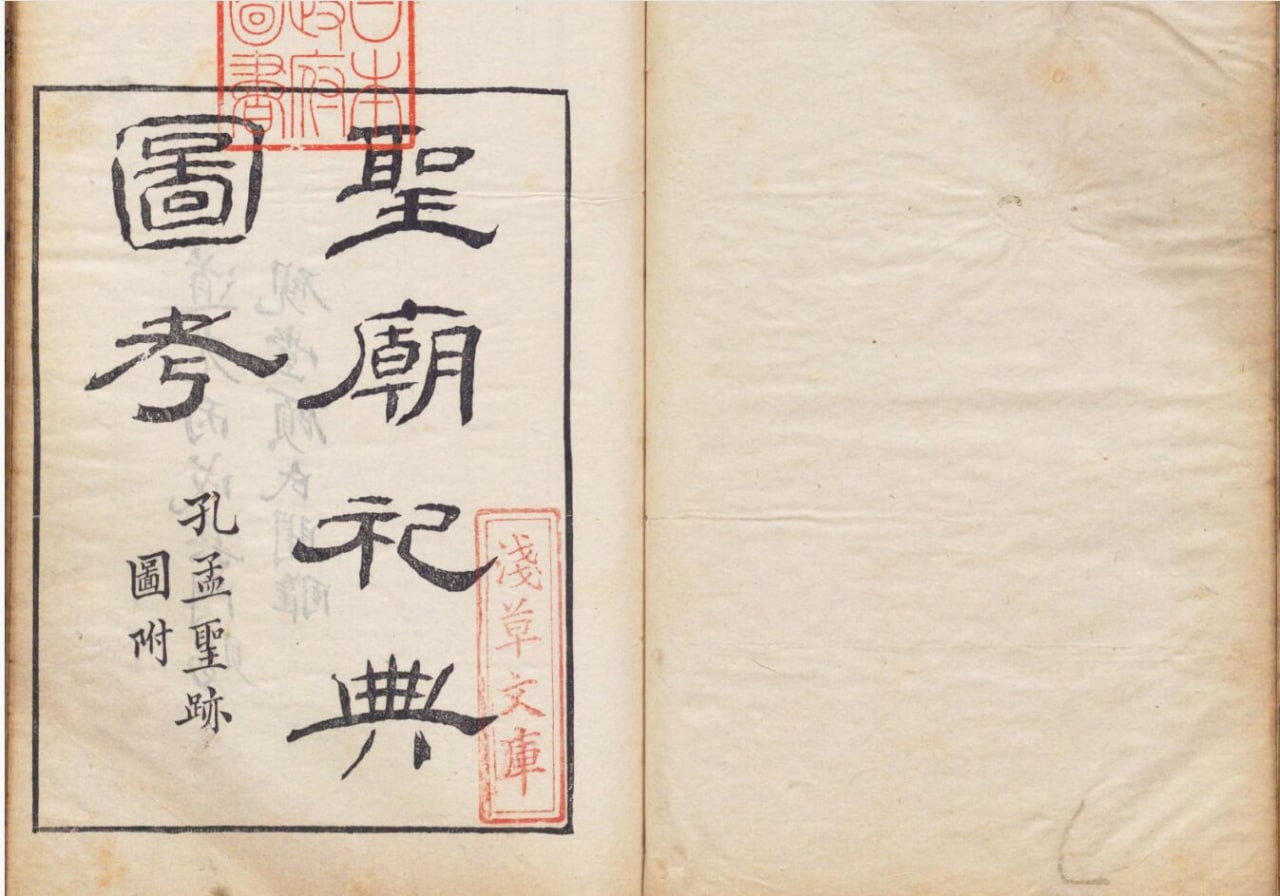 日本
政府
圖書
聖廟祀典
圖考
孔孟聖跡
圖附
淺草文庫